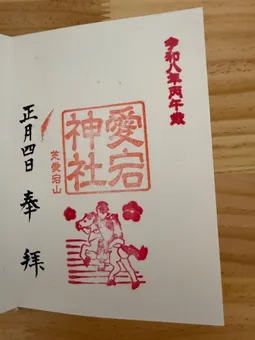 令和八年丙午歳
愛宕
神社
芝愛宕山
正月四日
奉拝